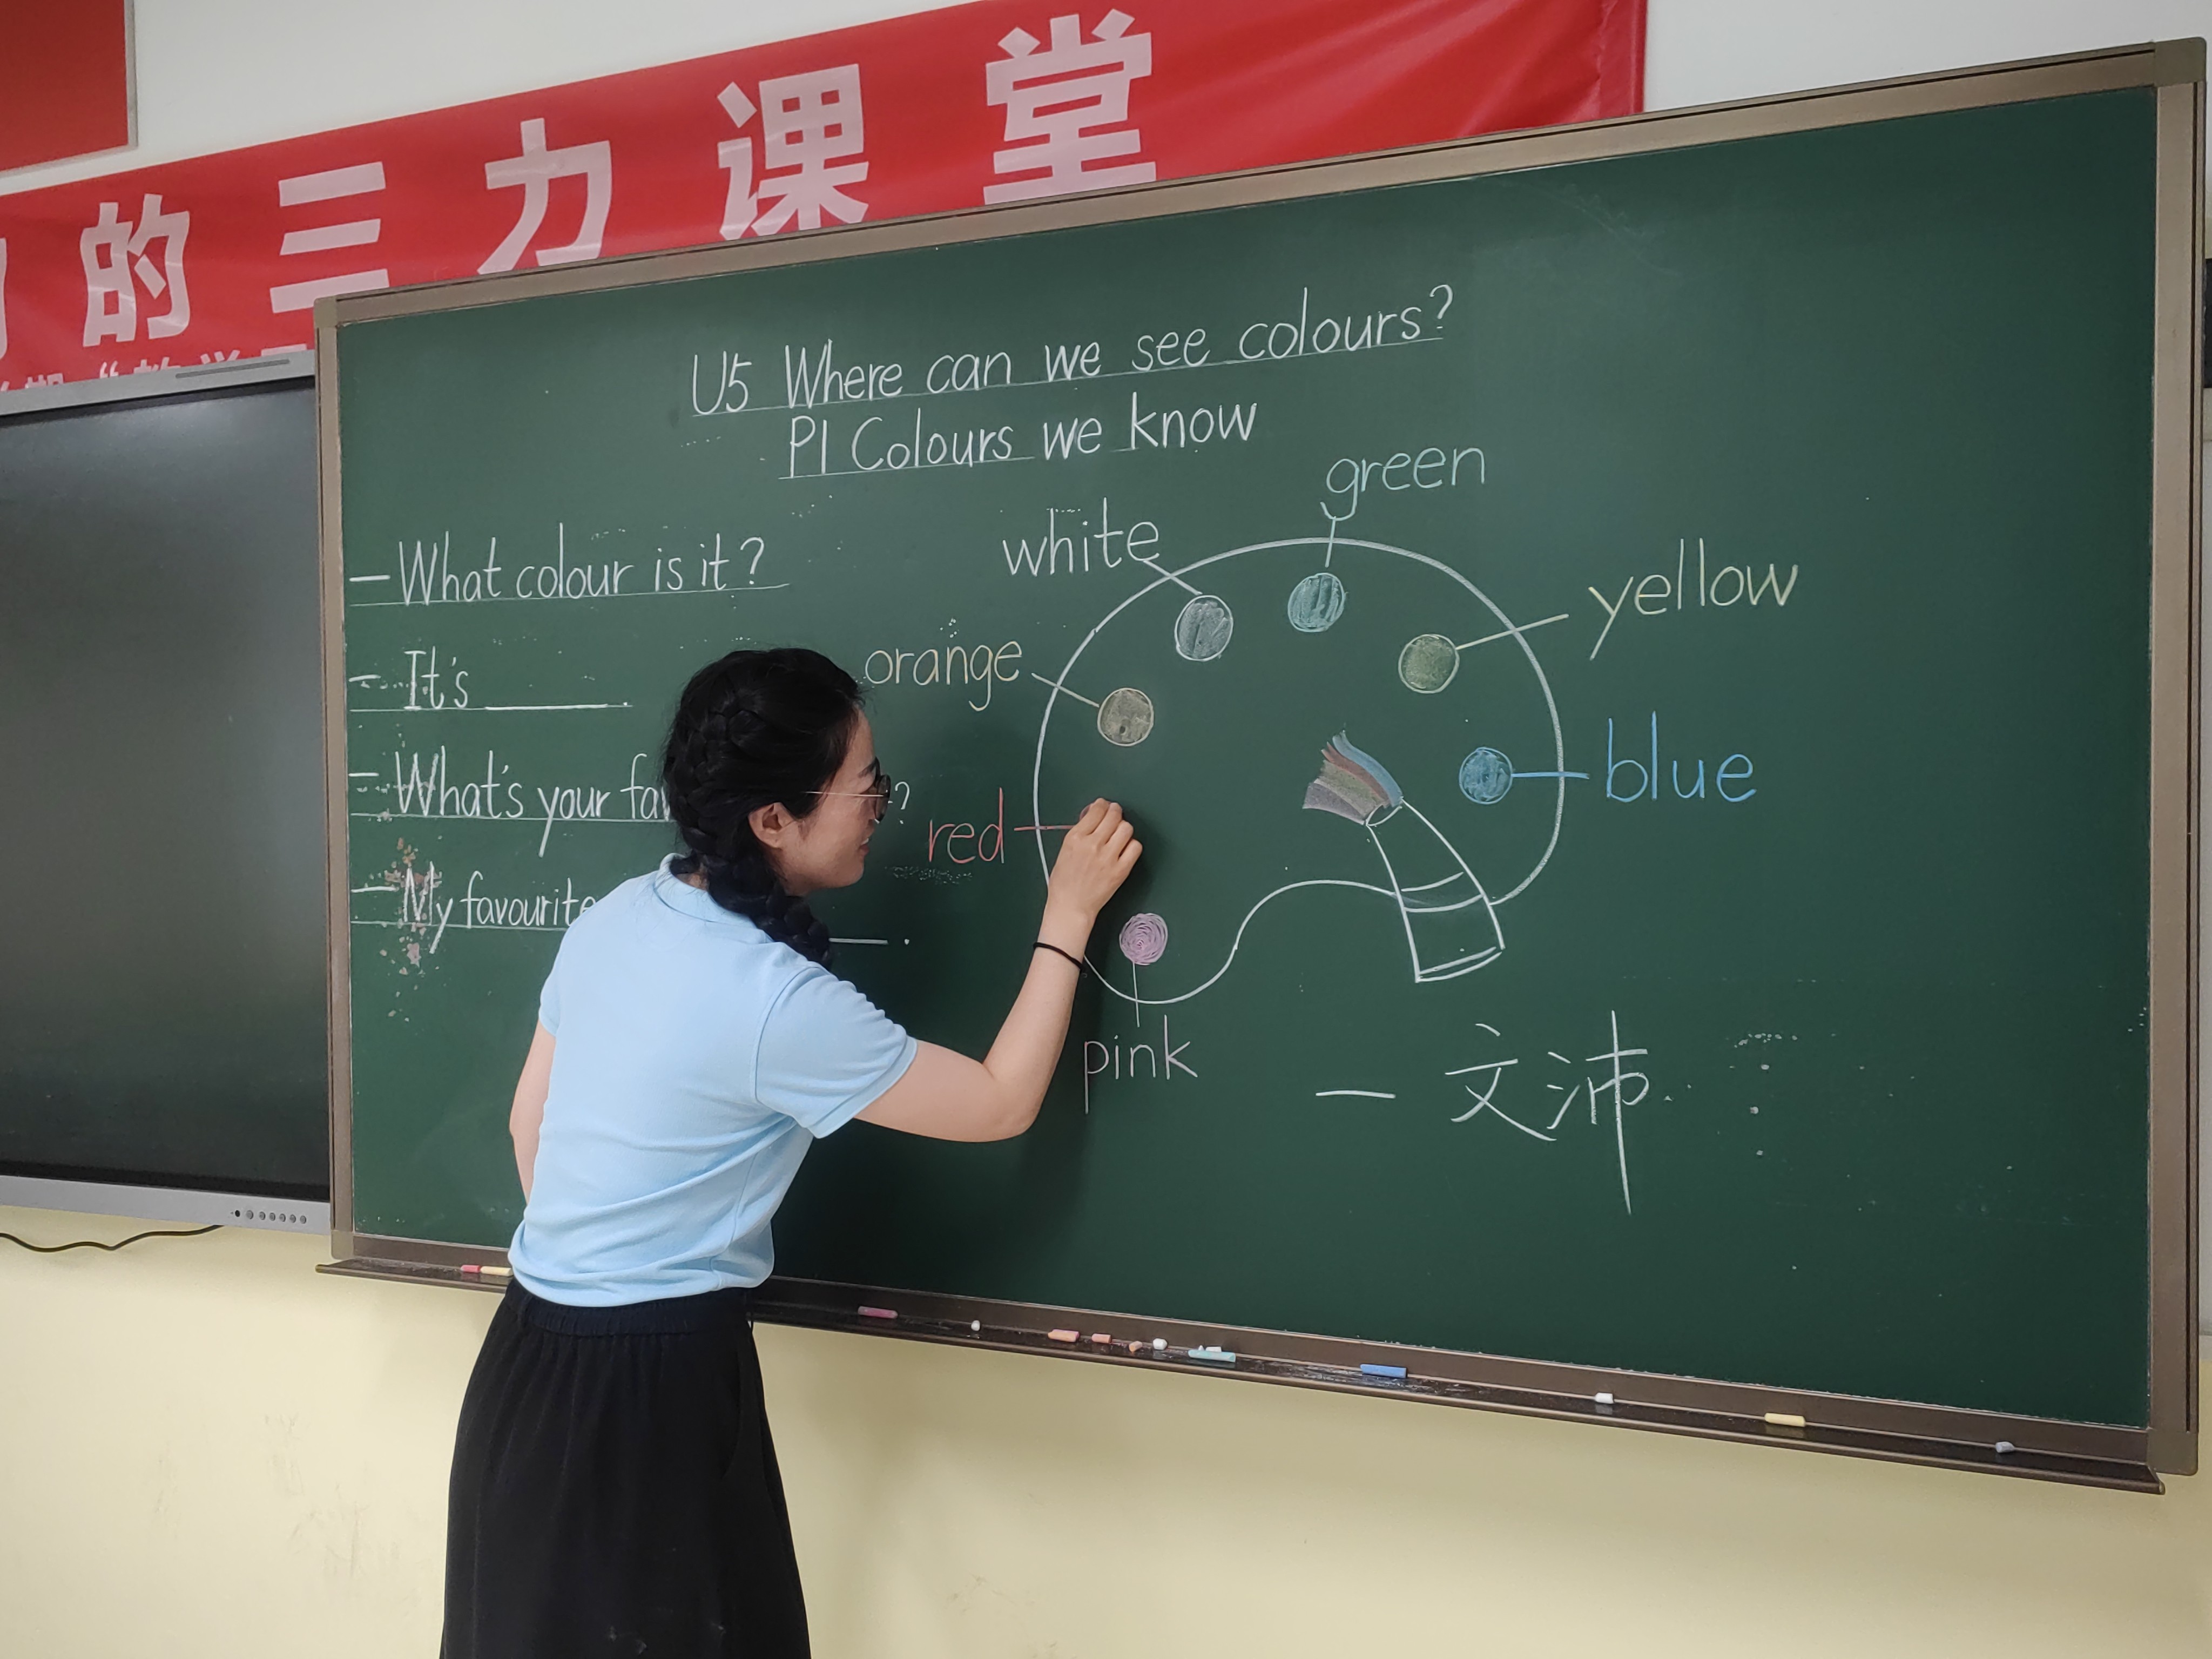 的三力课堂
U5 Where can we see colours?
P1 Colours we know
— What colour is it?
— It's ______.
— What's your fa ?
— My favourite ______.
green
white
yellow
orange
blue
red
pink
— 文沛